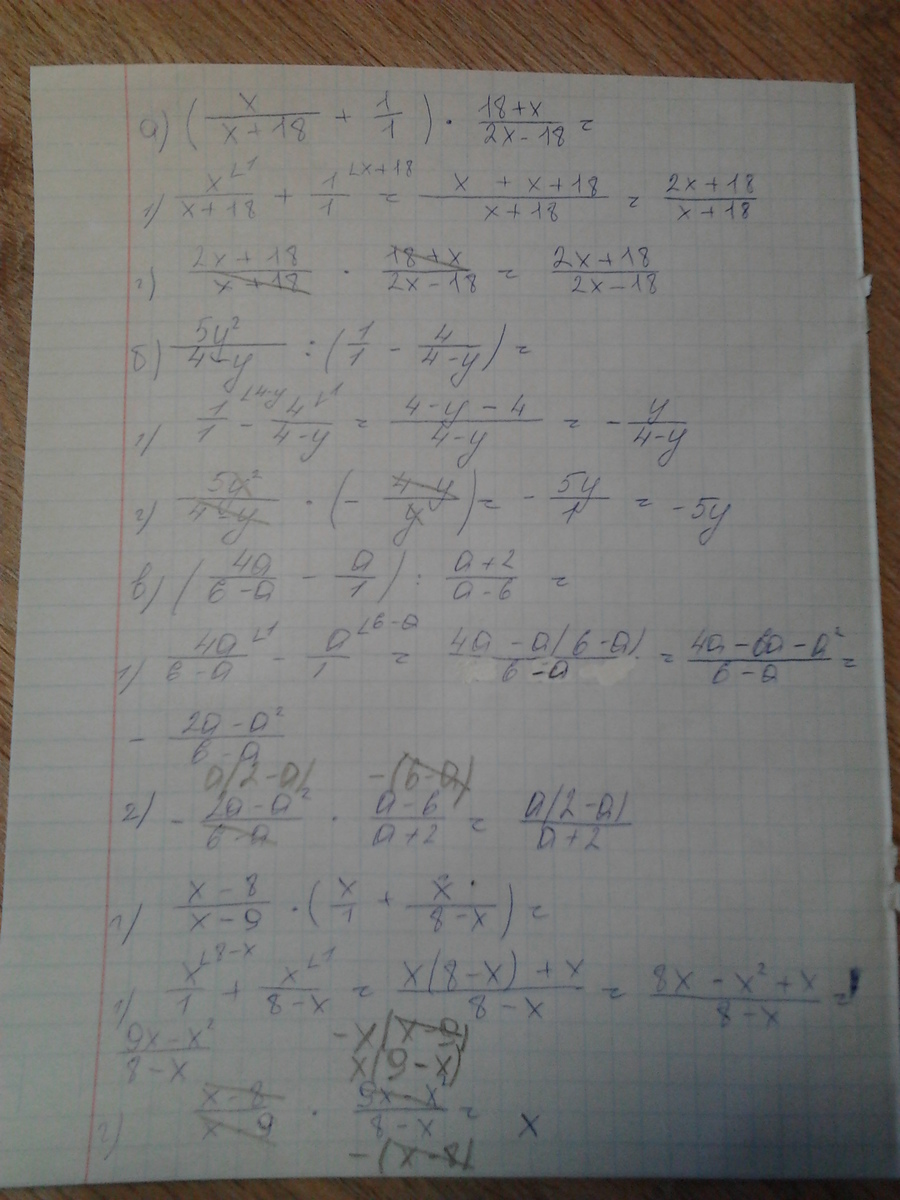 а) (x/(x+18) + 1/1) · (18+x)/(2x-18) =
1) x/(x+18) ∟1 + 1/1 ∟x+18 = (x + x+18)/(x+18) = (2x+18)/(x+18)
2) (2x+18)/(x+18) · (18+x)/(2x-18) = (2x+18)/(2x-18)
б) 5y²/(4-y) : (1/1 - 4/(4-y)) =
1) 1/1 ∟4-y - 4/(4-y) ∟1 = (4-y-4)/(4-y) = - y/(4-y)
2) 5y²/(4-y) · (- (4-y)/y) = - 5y/1 = -5y
в) (4a/(6-a) - a/1) : (a+2)/(a-6) =
1) 4a/(6-a) ∟1 - a/1 ∟6-a = (4a-a(6-a))/(6-a) = (4a-6a-a²)/(6-a) =
- (2a-a²)/(6-a)
a(2-a) -(6-a)
2) - (2a-a²)/(6-a) · (a-6)/(a+2) = a(2-a)/(a+2)
г) (x-8)/(x-9) · (x/1 + x/(8-x)) =
1) x/1 ∟8-x + x/(8-x) ∟1 = (x(8-x)+x)/(8-x) = (8x-x²+x)/(8-x) =
(9x-x²)/(8-x) -x(x-9)
x(9-x)
2) (x-8)/(x-9) · (9x-x²)/(8-x) = x
-(x-8)